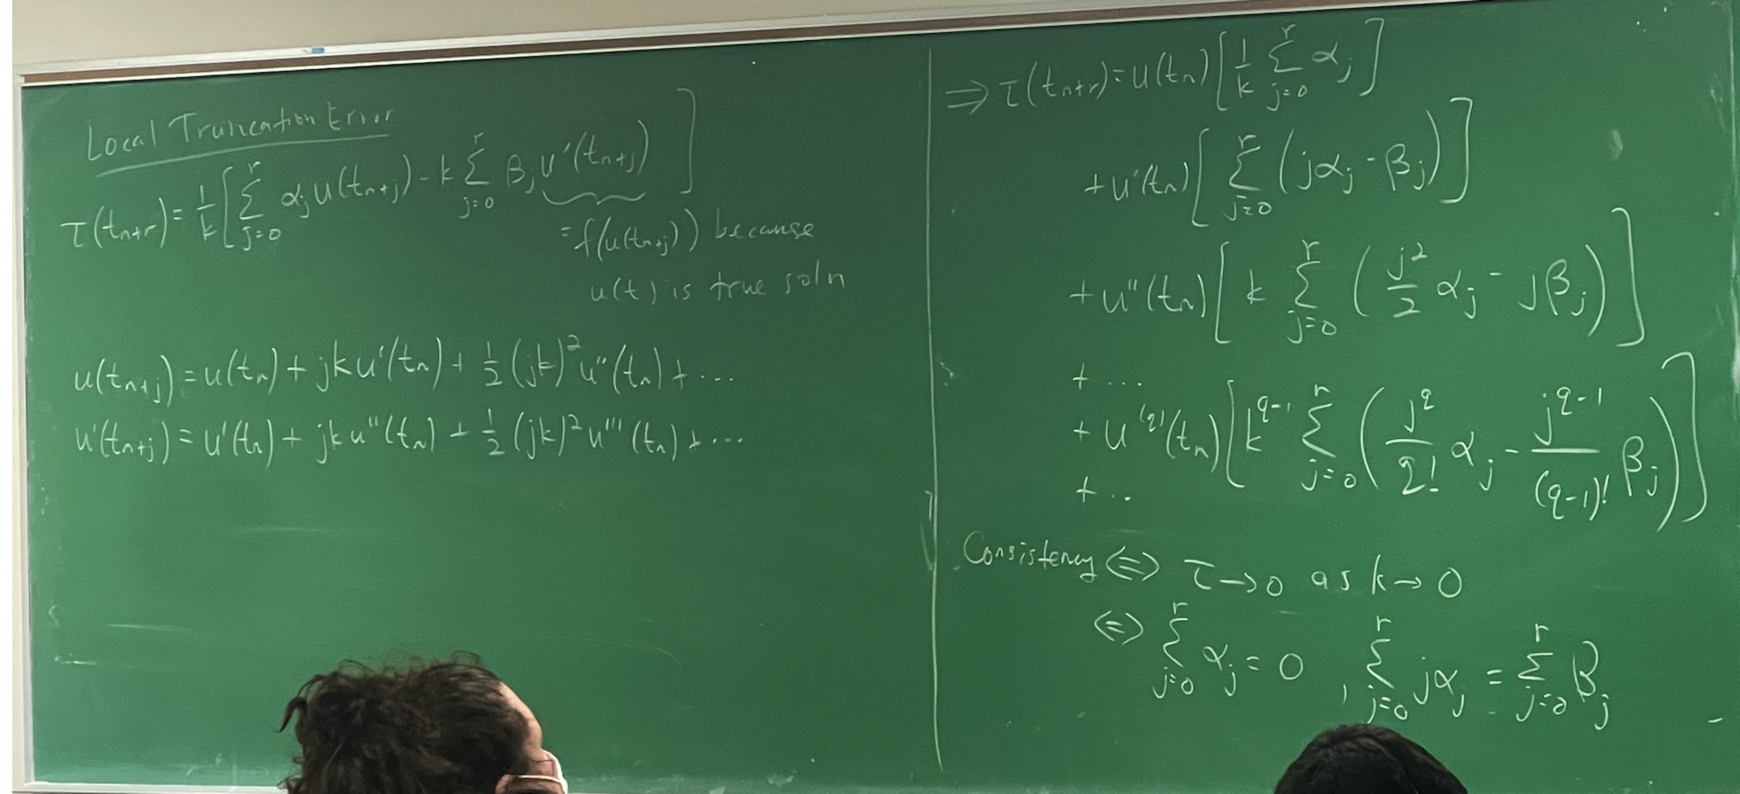 Local Truncation Error
τ(t_{n+r}) = 1/k [ Σ_{j=0}^{r} α_j u(t_{n+j}) - k Σ_{j=0}^{r} β_j u'(t_{n+j}) ]
= f(u(t_{n+j})) because
u(t) is true soln
u(t_{n+j}) = u(t_n) + jk u'(t_n) + 1/2 (jk)^2 u''(t_n) + ...
u'(t_{n+j}) = u'(t_n) + jk u''(t_n) + 1/2 (jk)^2 u'''(t_n) + ...
⇒ τ(t_{n+r}) = u(t_n) [ 1/k Σ_{j=0}^{r} α_j ]
+ u'(t_n) [ Σ_{j=0}^{r} (jα_j - β_j) ]
+ u''(t_n) [ k Σ_{j=0}^{r} ( j^2/2 α_j - jβ_j ) ]
+ ...
+ u^{(q)}(t_n) [ k^{q-1} Σ_{j=0}^{r} ( j^q/q! α_j - j^{q-1}/(q-1)! β_j ) ]
+ ..
Consistency ⇔ τ → 0 as k → 0
⇔ Σ_{j=0}^{r} α_j = 0 , Σ_{j=0}^{r} jα_j = Σ_{j=0}^{r} β_j